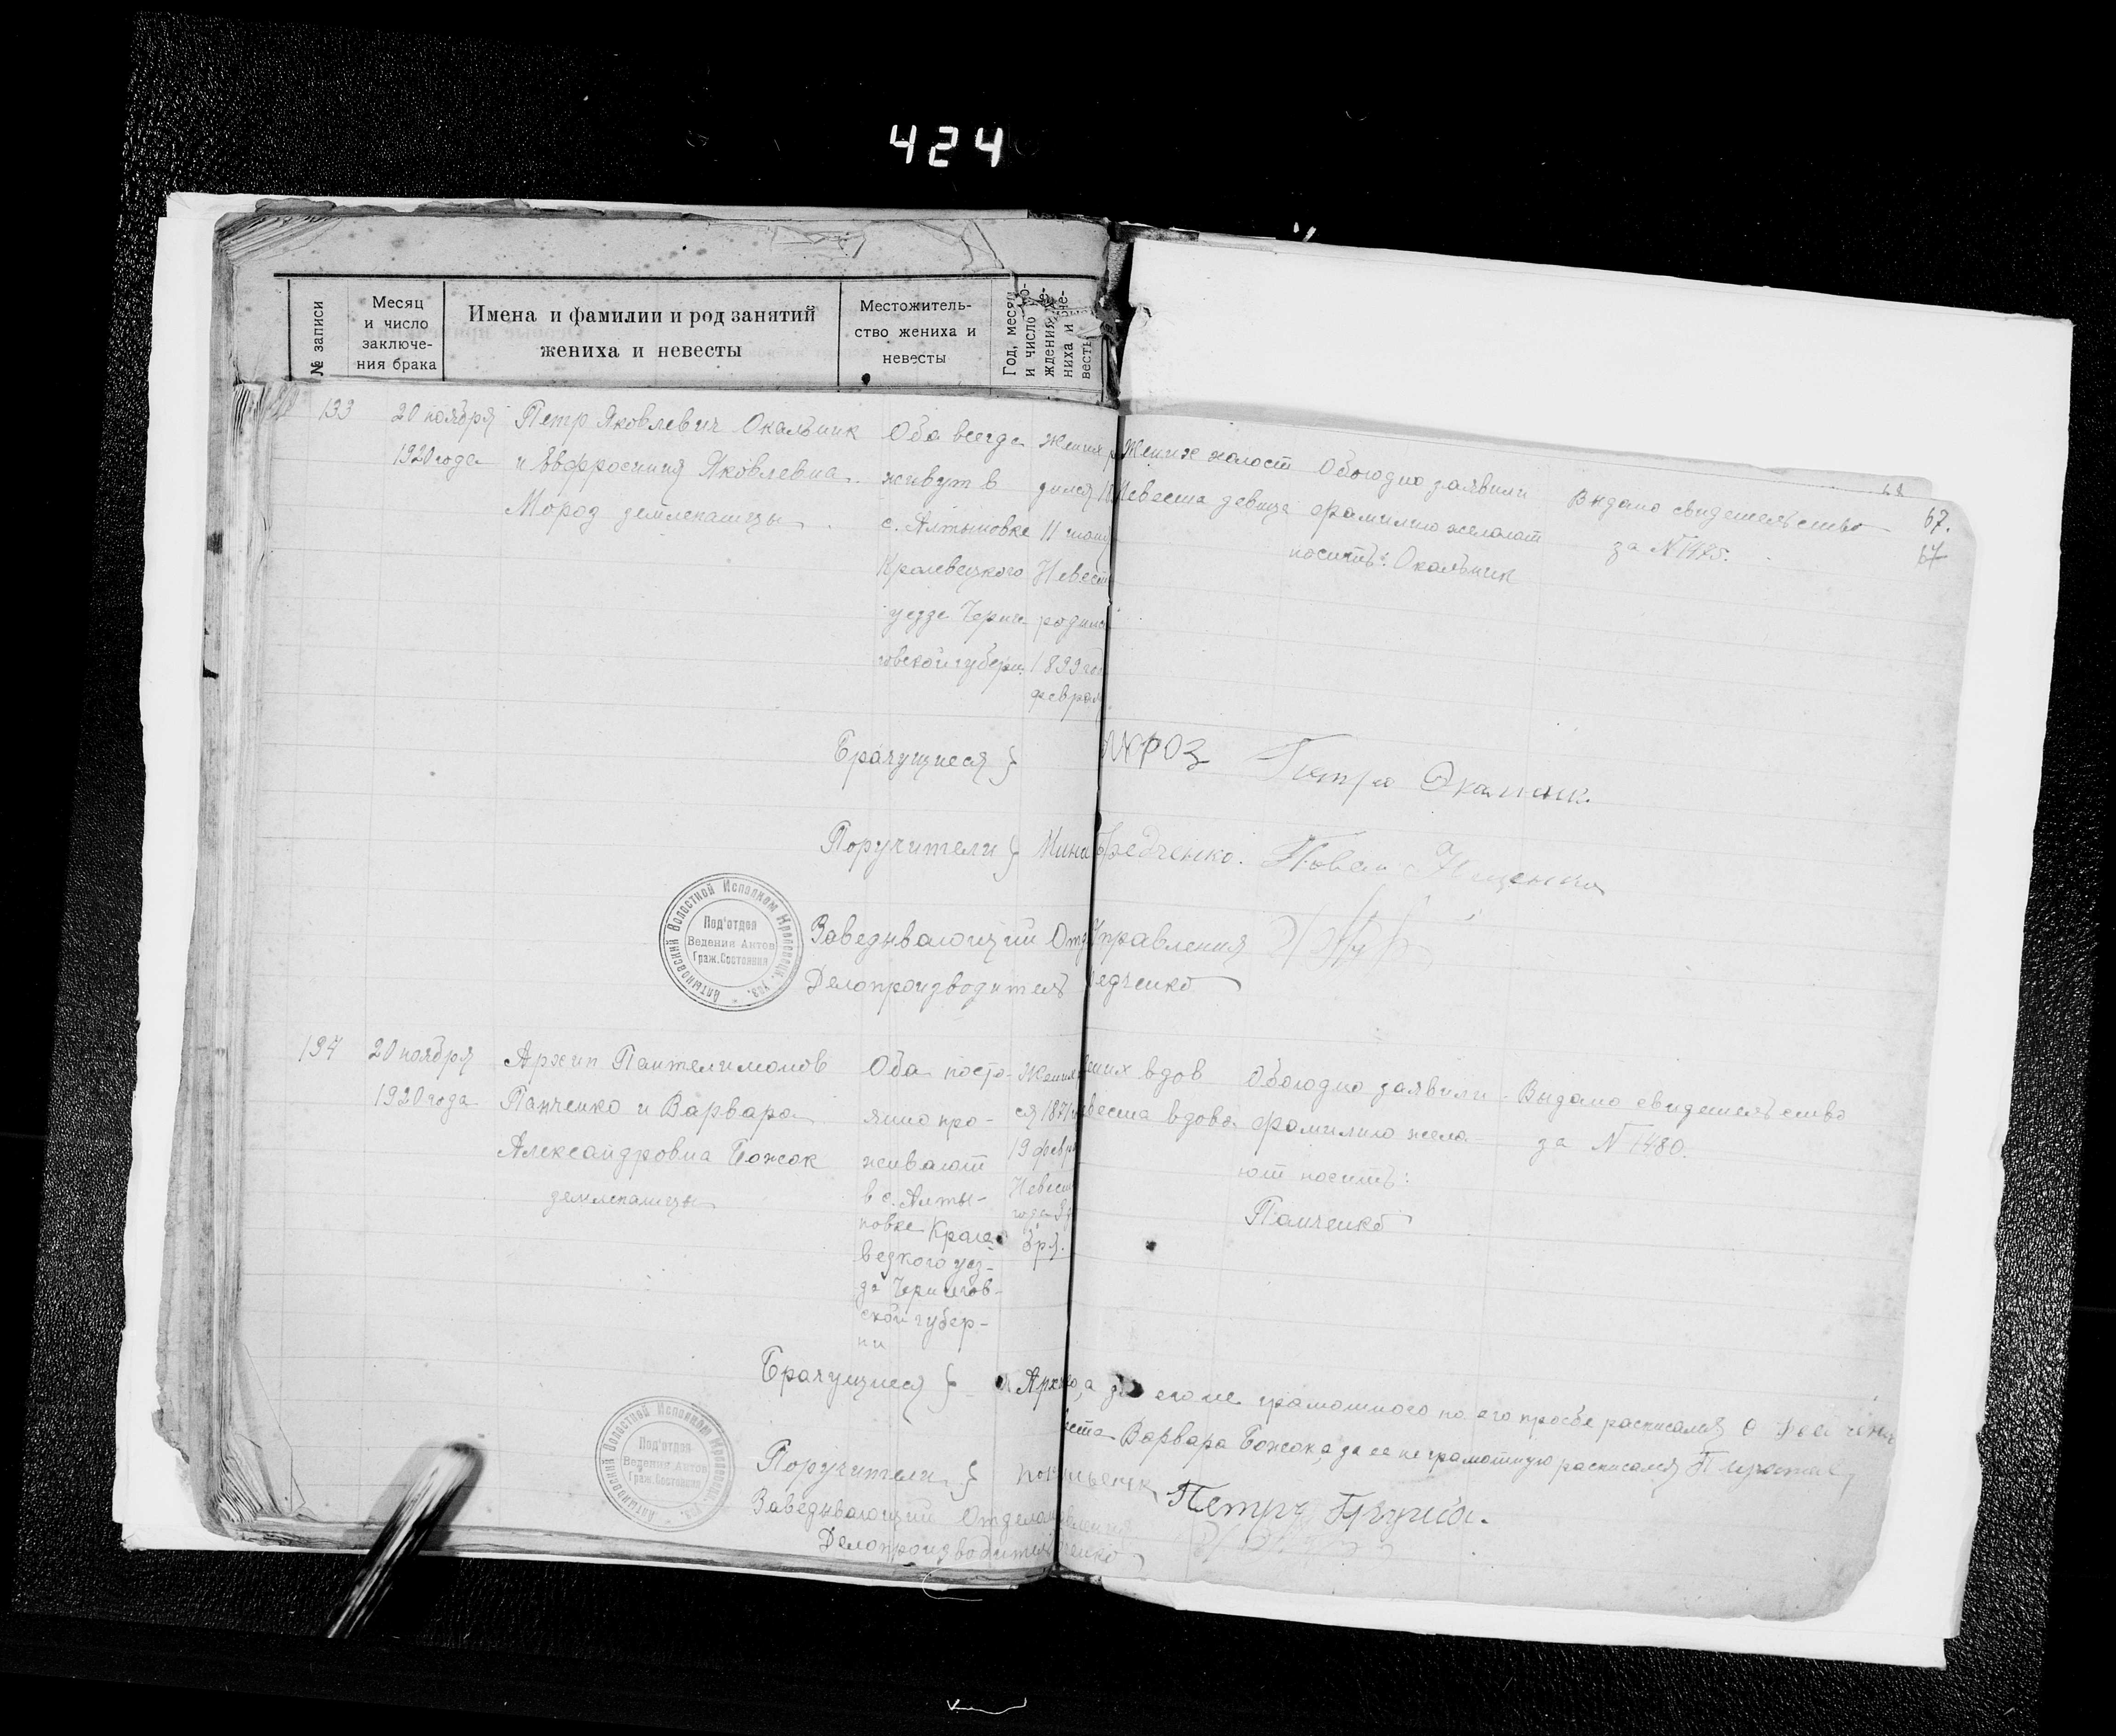 424
№ записи
Месяц
и число
заключе-
ния брака
Имена и фамилии и род занятий
жениха и невесты
Местожитель-
ство жениха и
невесты
Год, месяц
и число
ждения
ниха и
весты
133
20 ноября
1920 года
Петр Яковлевич Окальник
и Евфросиния Яковлевна
Мороз землепашцы
Оба всегда
живут в
с. Алтыновке
Кролевецкого
уезде Черни-
говской губерн.
Жених
11
Невест
родил
1899 го
феврал
Жених холост
Невеста девица
Обоюдно заявили
фамилию желают
носить: Окальник
Выдано свидетельство
за N 1475.
67.
67
Брачущиеся }
Петро
Поручители } Мина Федченко.
Заведывающий Отд Управления
Делопроизводитель едченко
Алтыновский Волостной Исполком Кролевецк. уез.
Под'отдел
Ведения Актов
Граж.Состояния
134
20 ноября
1920 года
Архип Пантелимонов
Панченко и Варвара
Александровна Божок
землепашцы
Оба посто-
янно про-
живают
в с. Алты-
новке Кроле-
вецкого уез-
да Чернигов-
ской губер-
ни
Жених
ся 1871
19 февр
Невест
бря.
ених вдов
евеста вдова
Обоюдно заявили
фамилию жела-
ют носить:
Панченко
Выдано свидетельство
за N 1480.
Брачущиеся } Архип, а за его не грамотного по его просьбе расписался
Варвара Божок, а за ее неграмотную расписался
Поручители }
Петр
Заведывающий Отделом
Делопроизводитель ченко
Алтыновский Волостной Исполком Кролевецк. уез.
Под'отдел
Ведения Актов
Граж.Состояния